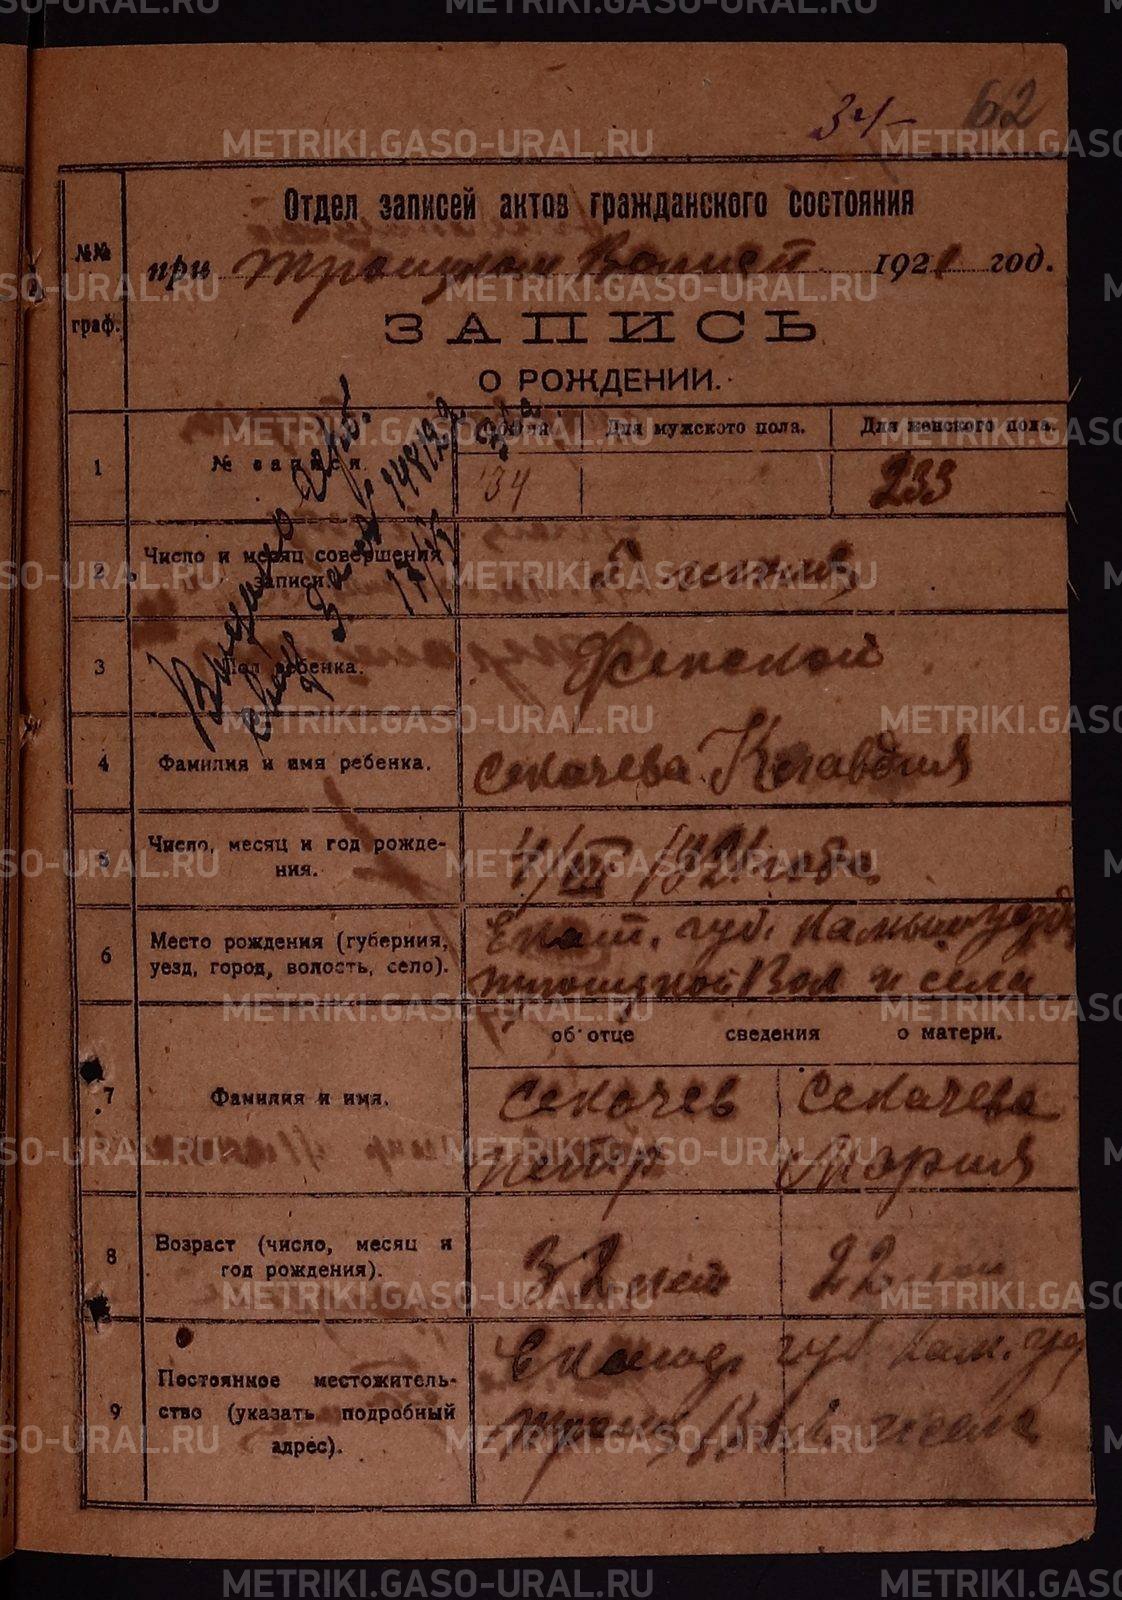 METRIKI.GASO-URAL.RU
34- 62
Отдел записей актов гражданского состояния
№№ граф.
при Троицком 1921 год.
ЗАПИСЬ
О РОЖДЕНИИ.
Общий Для мужского пола. Для женского пола.
1 № записи. 34 233
2 Число и месяц совершения
записи.
3 Пол ребенка. Женской
4 Фамилия и имя ребенка. Секачева Клавдия
5 Число, месяц и год рожде-
ния. 1921
6 Место рождения (губерния,
уезд, город, волость, село).
Екат. губ. Камыш уезд
Троицкой Вол и села
об отце сведения о матери.
7 Фамилия и имя. Секачев Секачева
Петр Мария
8 Возраст (число, месяц и
год рождения). 32 лет 22
9 Постоянное местожитель-
ство (указать подробный
адрес).
губ Кам. уез
Троиц Вол и села